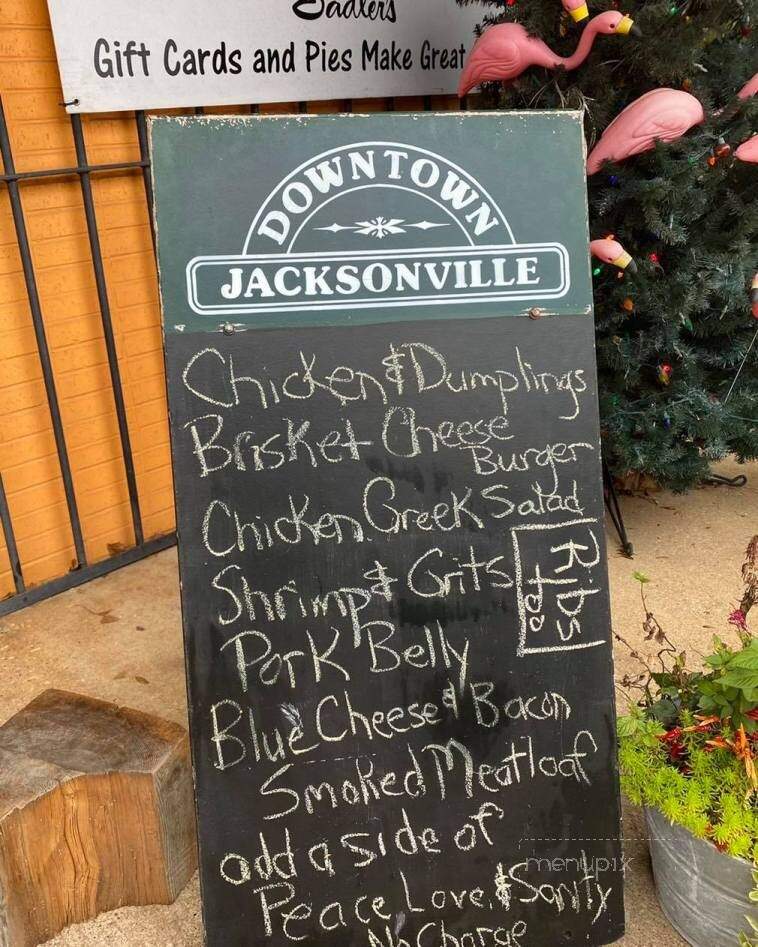 Sadlers
Gift Cards and Pies Make Great
DOWNTOWN
JACKSONVILLE
Chicken & Dumplings
Brisket Cheese
Burger
Chicken Greek Salad
Shrimp & Grits
Ribs
Pork Belly
Blue Cheese & Bacon
Smoked Meatloaf
add a side of
Peace Love, & Sanity
No Charge
menupix